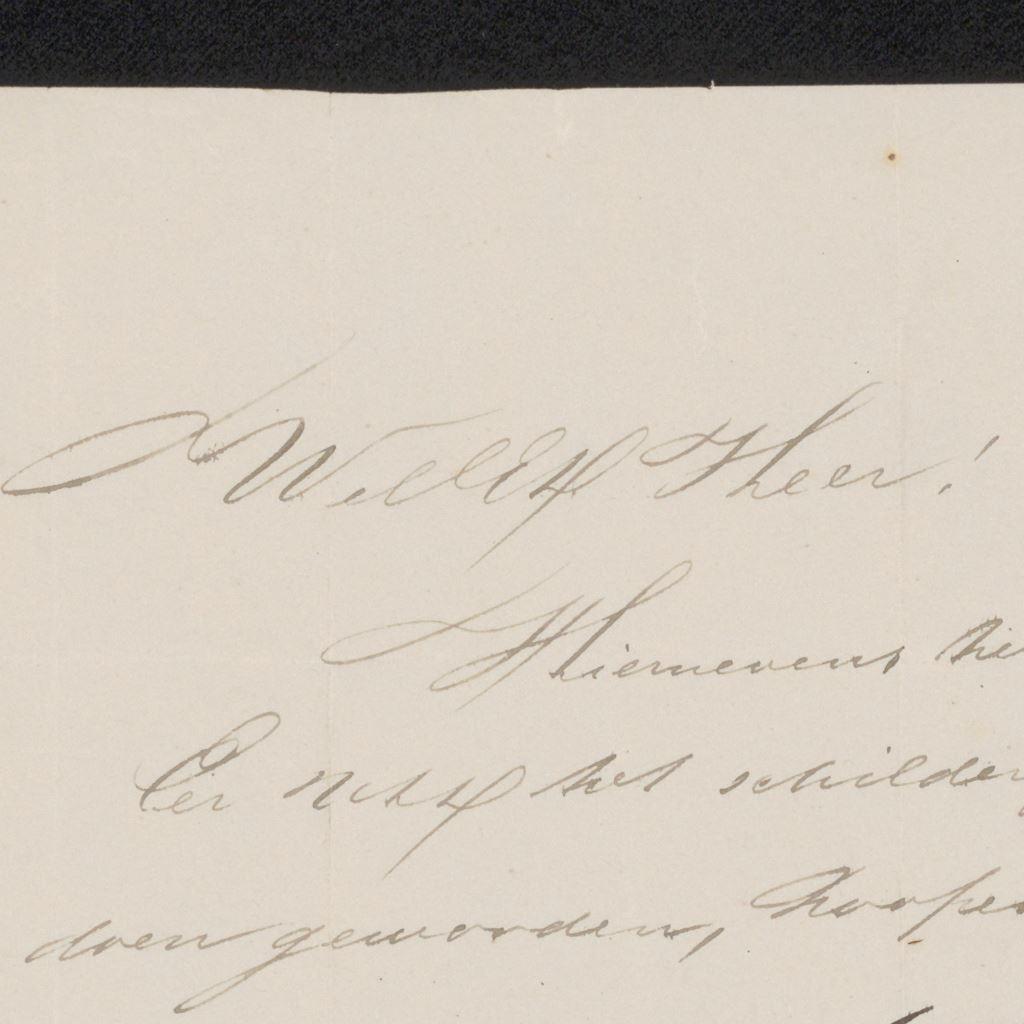 WelEd Heer!
Hiernevens
Er het schilder
doen geworden, hoopen